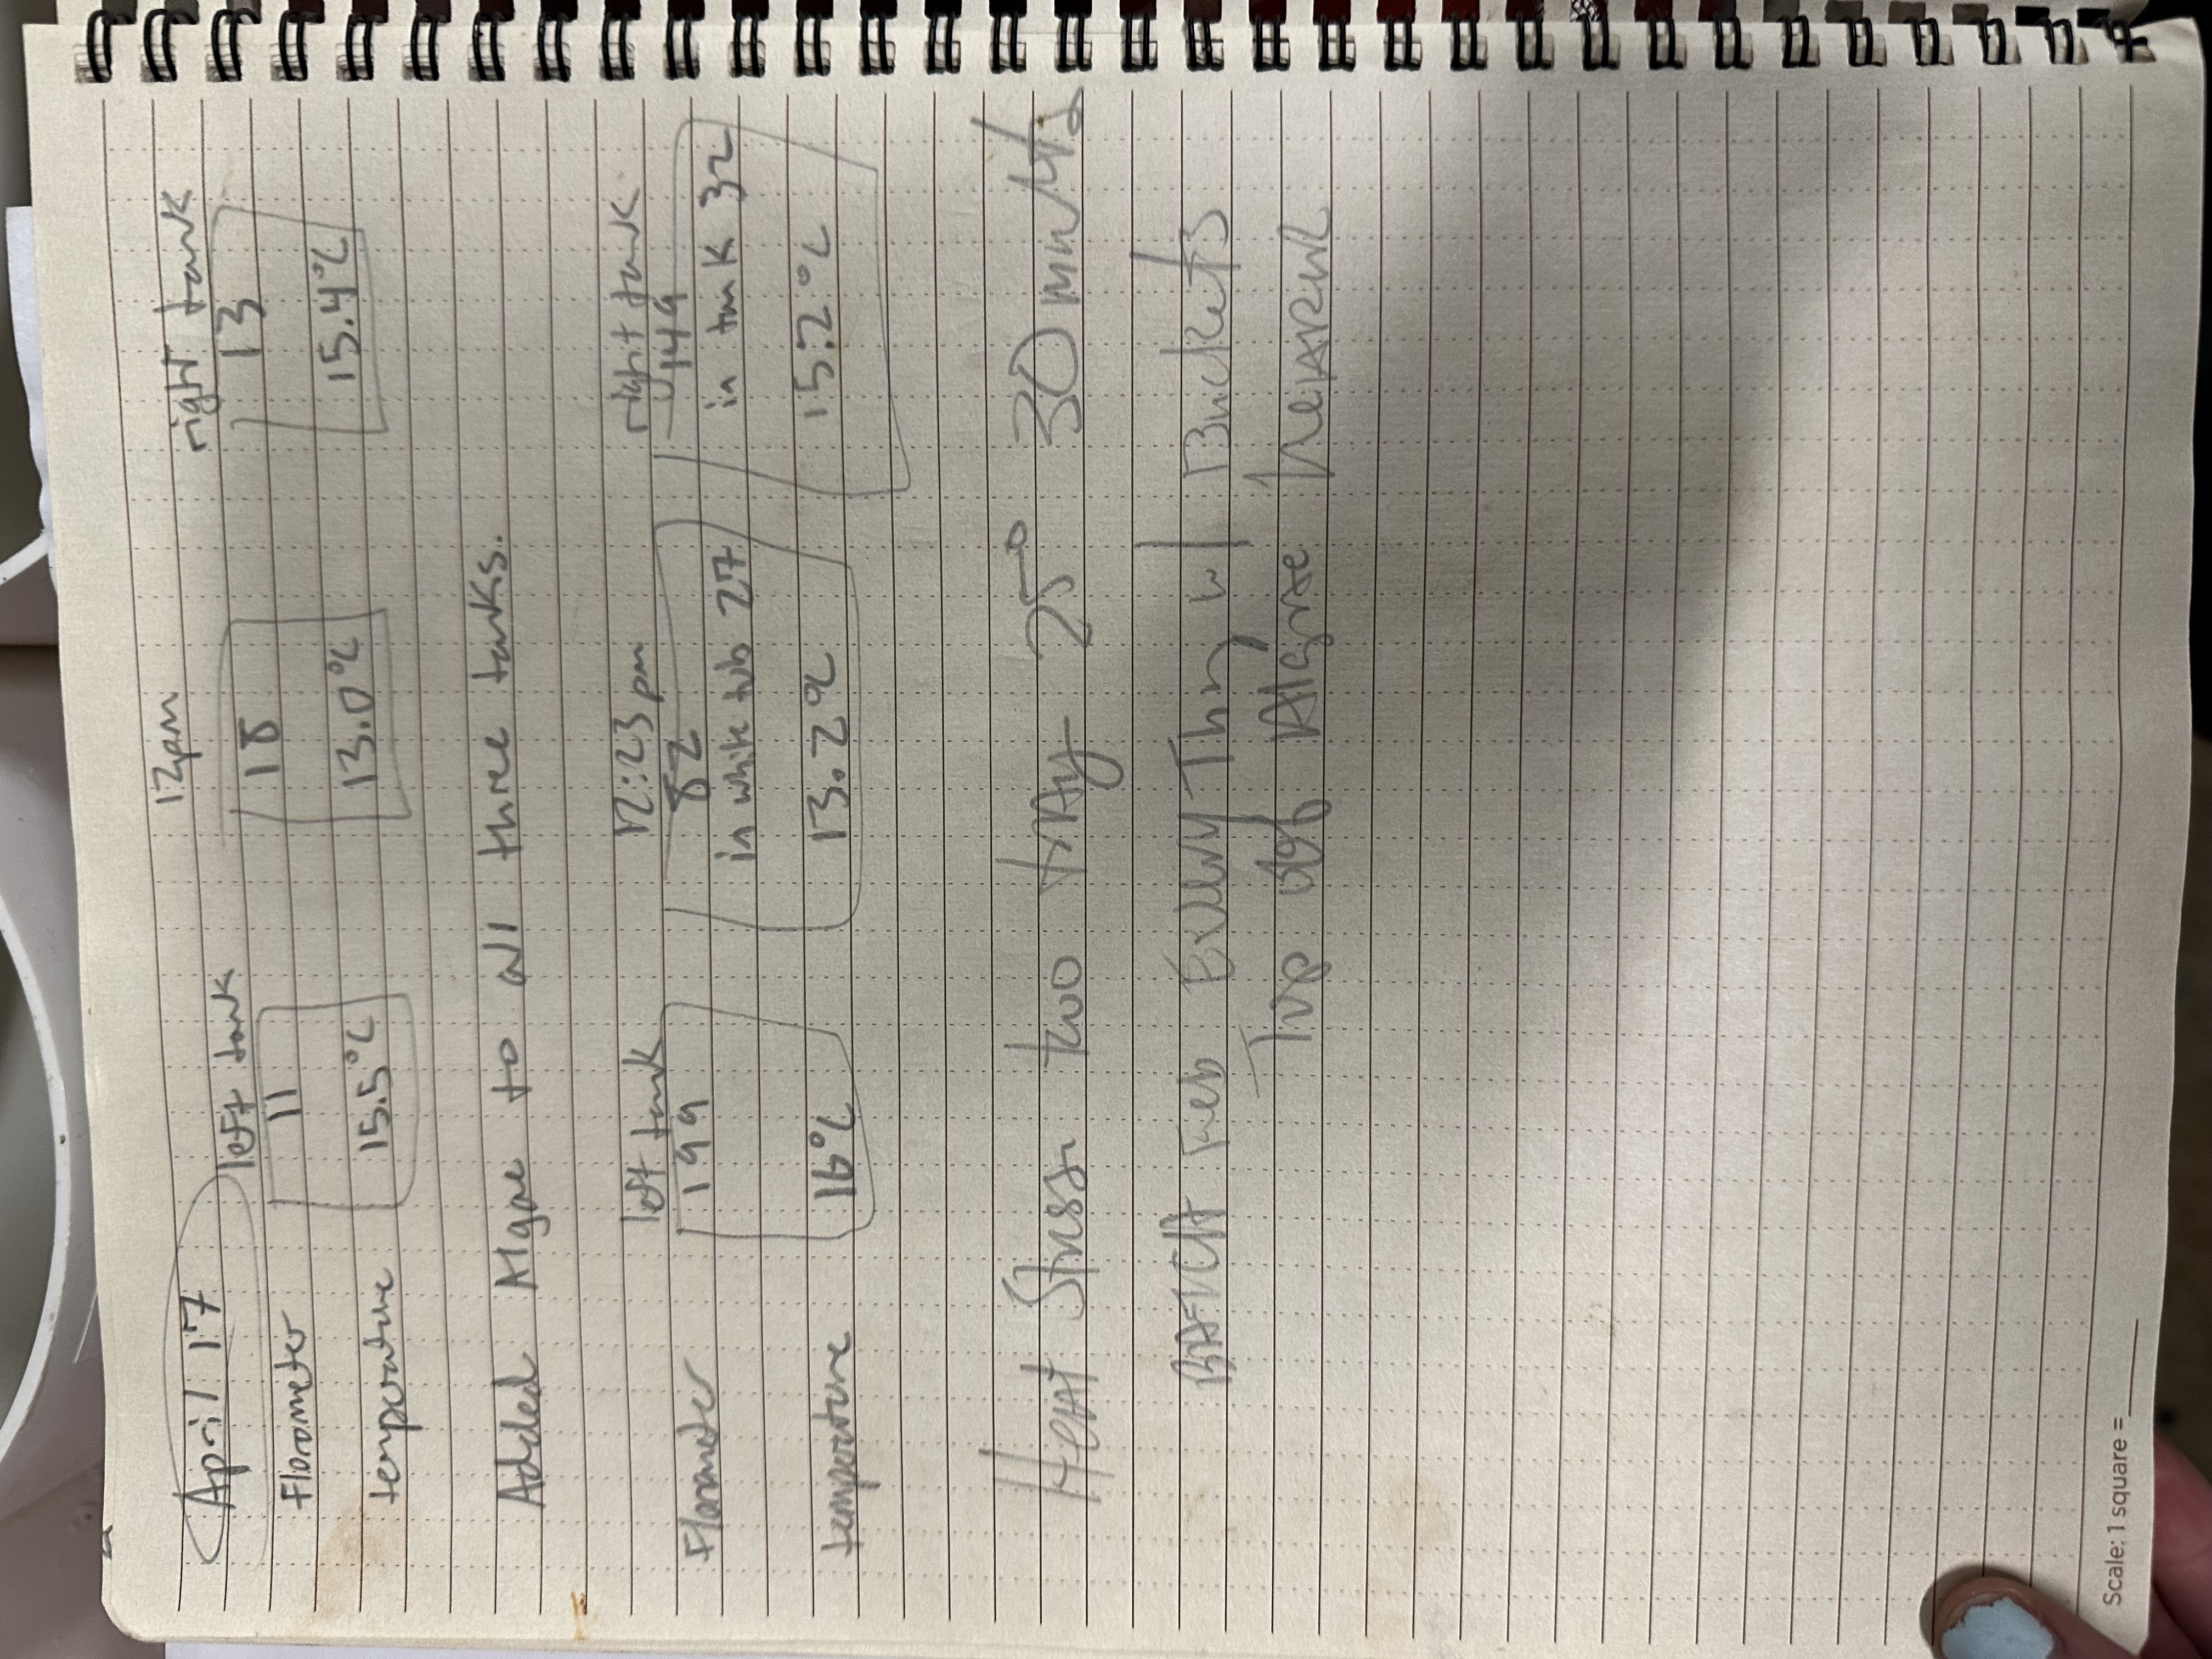 12pm
April 17 left tank right tank
Florometer 11 18 13
temperature 15.5°C 13.0°C 15.4°C
Added Algae to all three tanks.
left tank 12:23 pm right tank
Florometer 199 82 149
in white tub 27 in tank 32
temperature 16°C 13.2°C 15.2°C
Heat Stress two tray 25° 30
BATCH Feb Every Thing w/ Buckets
Top off Algae
Scale: 1 square =